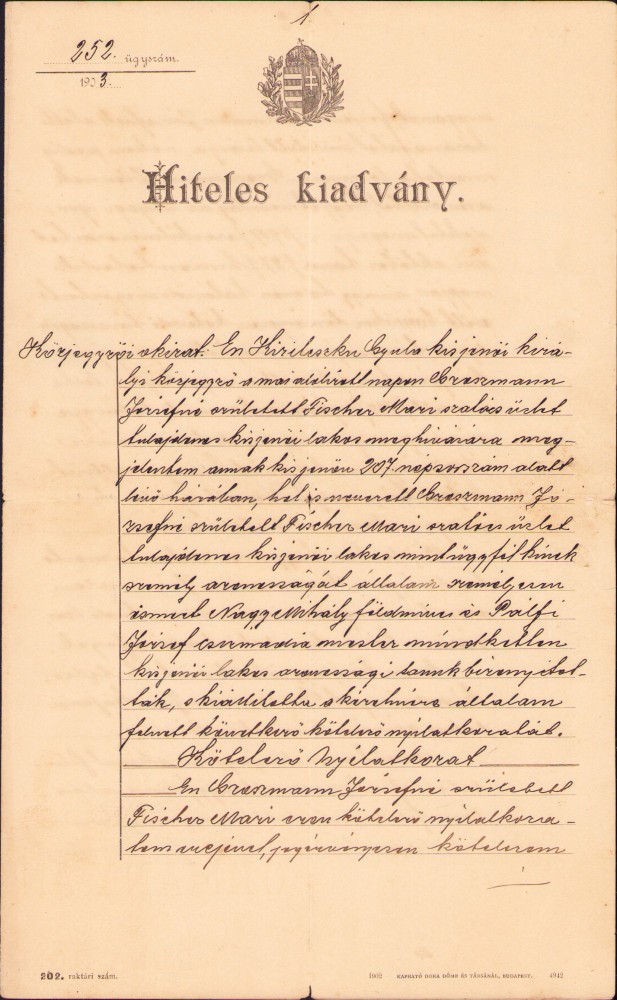 1
252. ügyszám.
1903.
Hiteles kiadvány.
Közjegyzői okirat: Én Kirileszku Gyula kisjenői kirá-
lyi közjegyző a mai alólirott napon Groszmann
Józsefné született Fischer Mari szatócs üzlet
tulajdonos kisjenői lakos meghivására meg-
jelentem annak kisjenőn 207 népsorszám alatt
lévő házában, hol is nevezett Groszmann Jó-
zsefné született Fischer Mari szatócs üzlet
tulajdonos kisjenői lakos mint ügyfél kinek
személy azonosságát általam személyesen
ösmert Nagy Mihály földmives és Pálfi
József csizmadia mester mindketten
kisjenői lakos azonossági tanuk bizonyitot-
ták, s kiállitotta a kérelmére általam
felvett következő kötelező nyilatkozatát.
Kötelező Nyilatkozat
Én Groszmann Józsefné született
Fischer Mari ezen kötelező nyilatkoza-
tom erejével, jogérvényesen kötelezem
202. raktári szám.
1902 KAPHATÓ DORA DÖME ÉS TÁRSÁNÁL, BUDAPEST. 4942